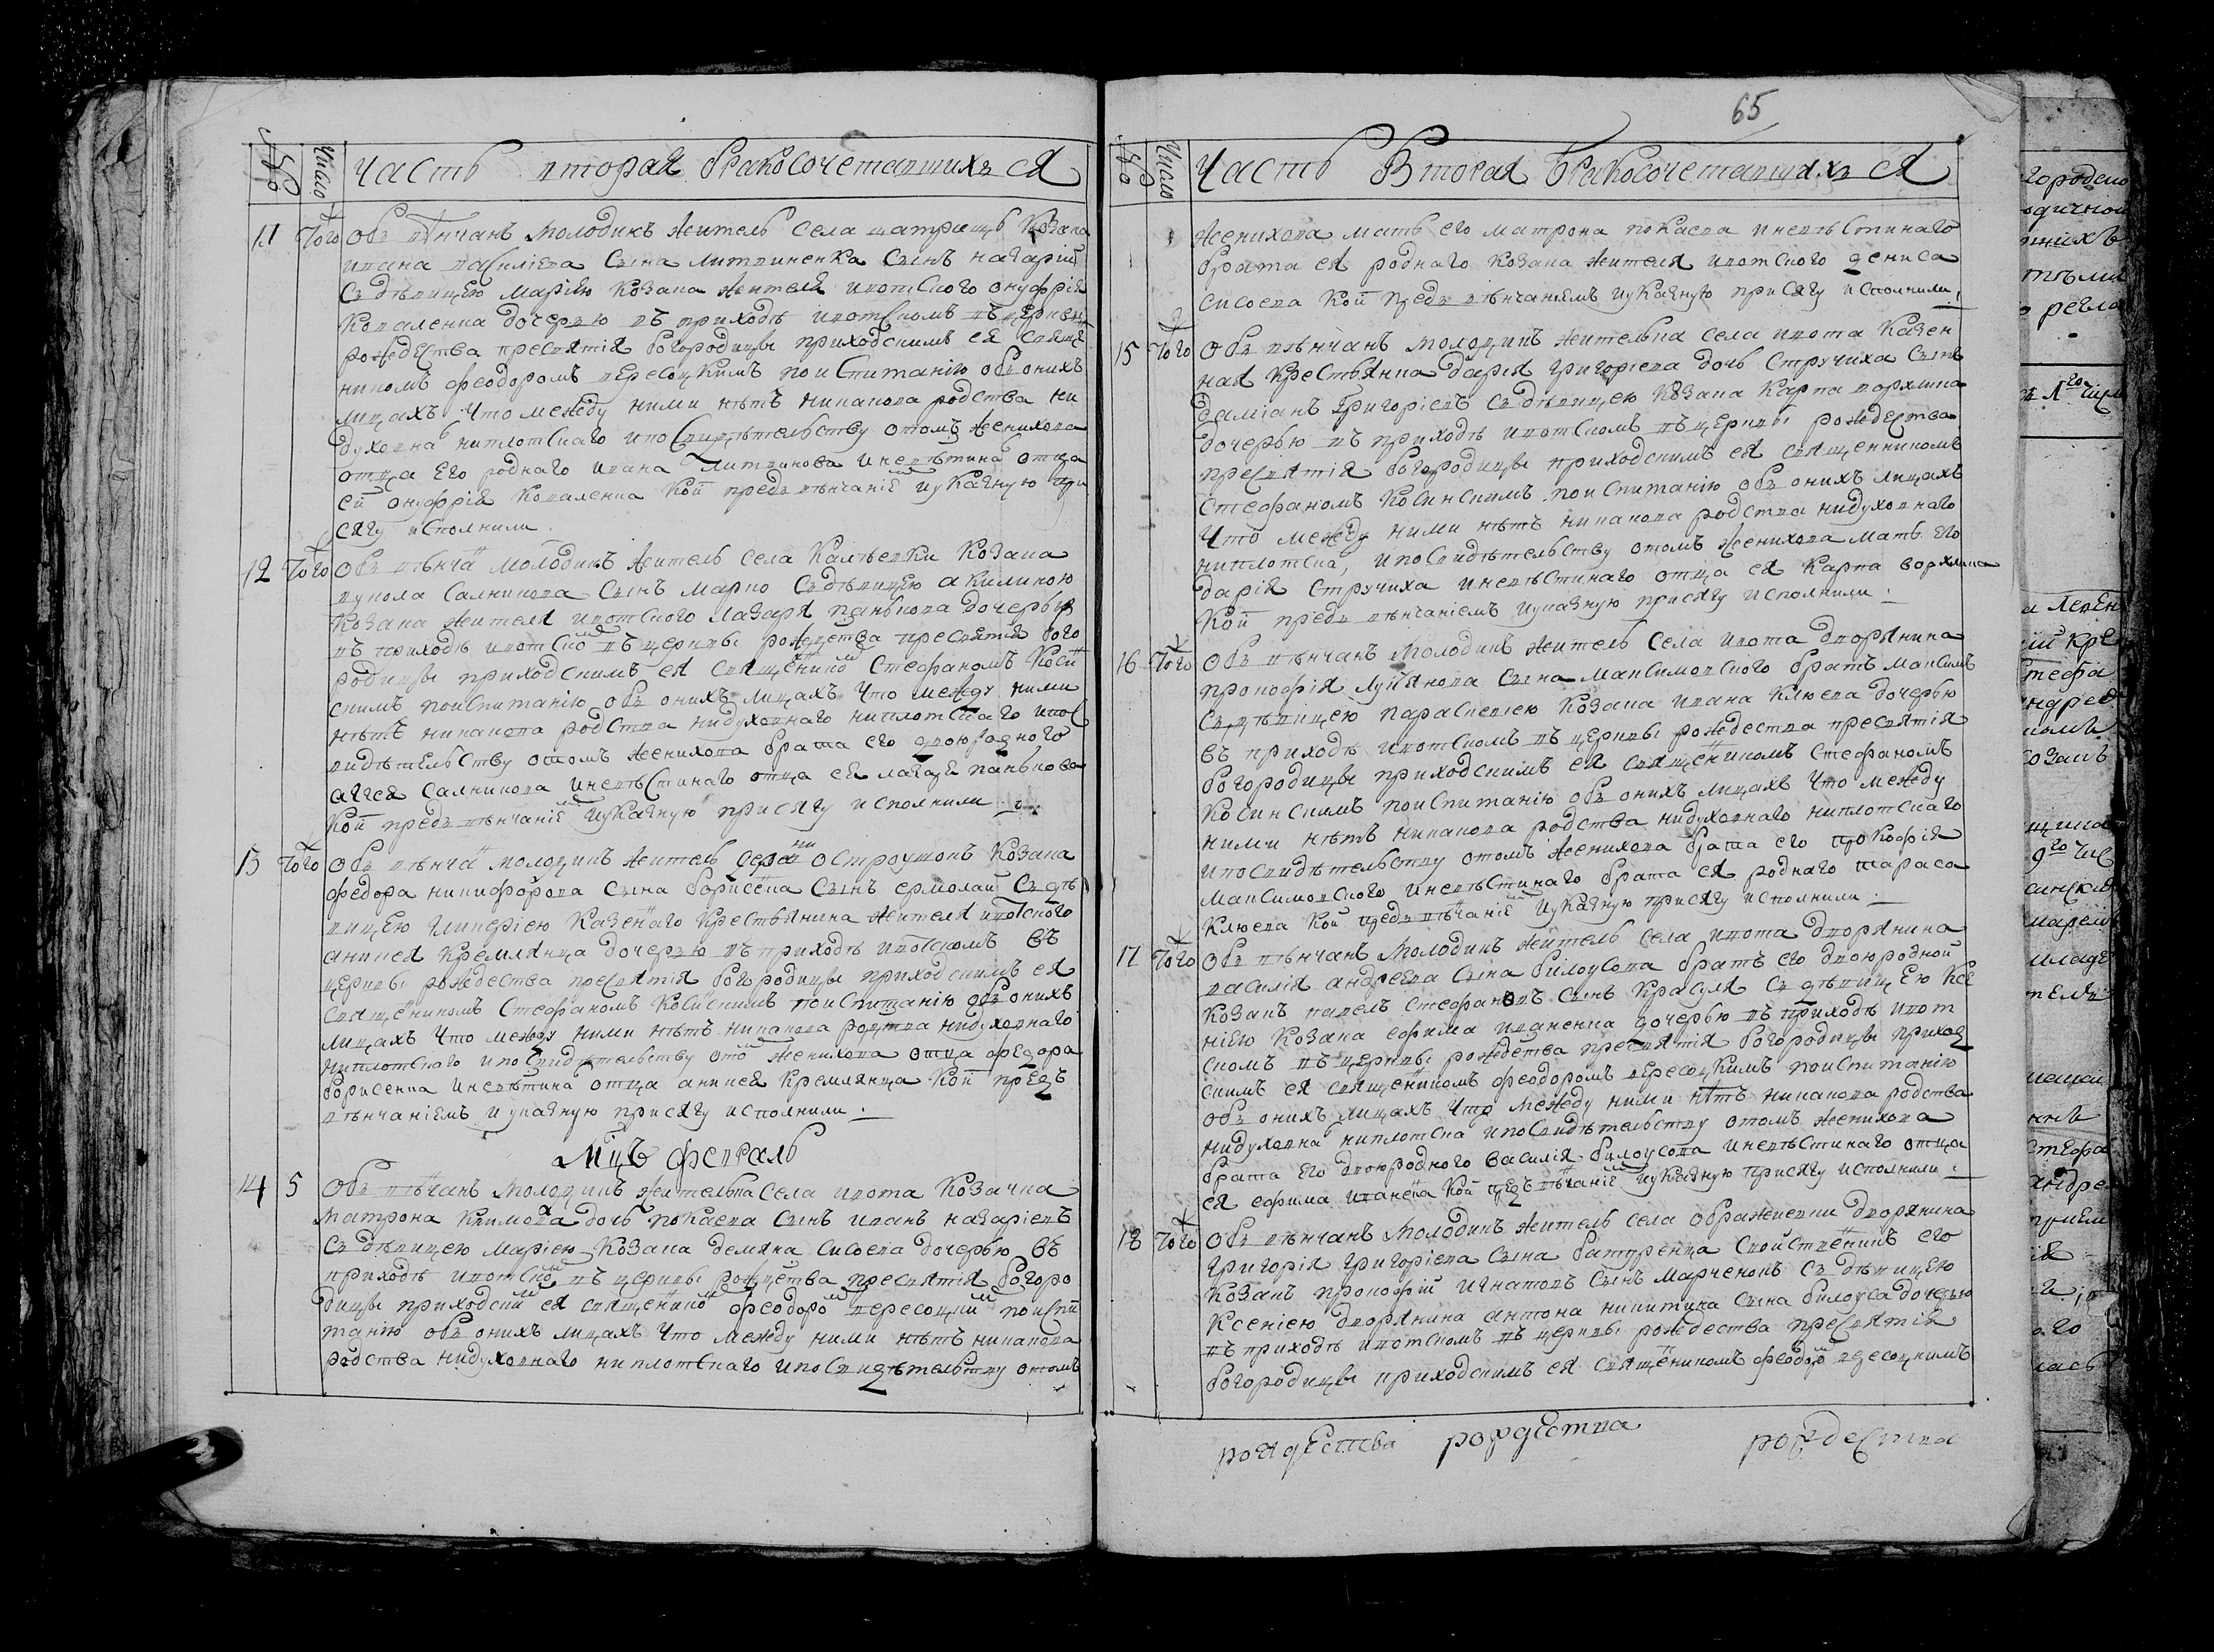 65
№ Число Часть вторая бракосочетавшихъ ся
11 Того Обвѣнчанъ молодикъ житель села Козака
ивана василіева сына литвиненка сынъ назарій
съ дѣвицею маріею козака жителя ивотского онуфрія
коваленка дочерью въ приходѣ ивотскомъ въ церкви
рождества пресвятія богородицы приходскимъ ея священ
никомъ феодоромъ пересоцкимъ поиспитанію обв онихъ
лицахъ что между ними нѣтъ никакова родства ни
духовнаˇ ниплотскаго ипосвидѣтельству отомъ женихова
отца его роднаго ивана литвинова иневѣстинаˇ отца
ей онуфрія коваленка кои предъ вѣнчаніеˇ иуказную при
сягу исполнили.
12 Того Обвѣнчаˇ молодикъ житель села Каліевки Козака
вукола салникова сынъ марко съ дѣвицею акилиною
козака жителя ивотского лазаря панькова дочерью
въ приходѣ ивотскоˇ въ церкви рождества пресвятія бого
родицы приходскимъ ея священикоˇ Стефаномъ Коси
скимъ поиспитанію обв онихъ лицахъ что между ними
нѣтъ никакова родства нидуховнаго ниплотскаго ипос
видѣтельству отомъ женихова брата его двоюродного
аггея салникова иневѣстинаго отца ея лазаря панькова
кои предъ вѣнчаніеˇ иуказную присягу исполнили.
13 Того Обвѣнчаˇ молодикъ житель деревни острoушокъ Козака
федора никифорова сына борисенка сынъ ермолай съ дѣ
вицею гликеріею казенаго крестьянина жителя ивотского
аникея кремлянца дочерью въ приходѣ ивотскомъ въ
церкви рождества пресвятія богородицы приходскимъ ея
священикомъ Стефаномъ Косискимъ поиспитанію обв онихъ
лицахъ что между ними нѣтъ никакова родства нидуховнаго
ниплотскаго ипосвидѣтельству отоˇ женихова отца федора
борисенка иневѣстинаˇ отца аникея кремлянца кои предъ
вѣнчаніемъ иуказную присягу исполнили.
мцъ февраль
14 5 Обвѣнчанъ молодикъ жителька села ивота козачка
матрона климова дочь покаева сынъ иванъ назаріевъ
съ дѣвицею маріею козака демяна сисоева дочерью въ
приходѣ ивотскоˇ въ церкви рождества пресвятія богоро
дицы приходскиˇ ея священикоˇ феодороˇ пересоцкиˇ поиспи
танію обв онихъ лицахъ что между ними нѣтъ никакова
родства нидуховнаго ниплотскаго ипосвидѣтельству отомъ
№ Число Часть Вторая Бракосочетавшихъ ся
женихова мать его матрона покаева иневѣстинаго
брата ея роднаго козака жителя ивотского дениса
сисоева кои предъ вѣнчаніемъ иуказную присягу исполнили.
15 Того Обвѣнчанъ молодикъ жителька села ивота казен
ная крестьянка дарія григоріева дочь стручиха сынъ
даміанъ григоріевъ съ дѣвицею козака карпа ворхлика
дочерью въ приходѣ ивотскомъ въ церкви рождества
пресвятія богородицы приходскимъ ея священникомъ
стефаномъ косинскимъ поиспитанію обв онихъ лицахъ
что между ними нѣтъ никакова родства нидуховнаго
ниплотска, ипосвидѣтельству отомъ женихова мать его
дарія стручиха иневѣстинаго отца ея карпа ворхлика
кои предъ вѣнчаніемъ иуказную присягу исполнили.
16 Того Обвѣнчанъ молодикъ житель села ивота дворянина
прокофія лукянова сына максимовского братъ максимъ
съ дѣвицею параскевіею козака ивана клюева дочерью
въ приходѣ ивотскомъ въ церкви рождества пресвятія
богородицы приходскимъ ея священикомъ стефаномъ
косинскимъ поиспитанію обв онихъ лицахъ что между
ними нѣтъ никакова родства нидуховнаго ниплотскаго
ипосвидѣтельству отомъ женихова брата его прокофія
максимовского иневѣстинаго брата ея роднаго тараса
клюева кои предъ вѣнчаніеˇ иуказную присягу исполнили.
17 Того Обвѣнчанъ молодикъ житель села ивота дворянина
василія андреева сына билоусова братъ его двоюродной
козакъ павелъ стефановъ сынъ красуля съ дѣвицею ксе
ніею козака ефима иваненка дочерью въ приходѣ ивот
скомъ въ церкви рождества пресвятія богородицы приход
скимъ ея священикомъ феодоромъ пересоцкимъ поиспитанію
обв онихъ лицахъ что между ними нѣтъ никакова родства
нидуховнаˇ ниплотска ипосвидѣтельству отомъ женихова
брата его двоюродного василія билоусова иневѣстинаго отца
ея ефима иваненка кои предъ вѣнчаніеˇ иуказную присягу исполнили.
18 Того Обвѣнчанъ молодикъ житель села ображиевки дворянина
григорія григоріева сына батуренца свойственикъ его
козакъ прокофій игнатовъ сынъ марченокъ съ дѣвицею
ксеніею дворянина антона никитина сына билоуса дочерью
въ приходѣ ивотскомъ въ церкви рождества пресвятія
богородицы приходскимъ ея священикомъ феодороˇ пересоцкимъ
рождества рождества рождества